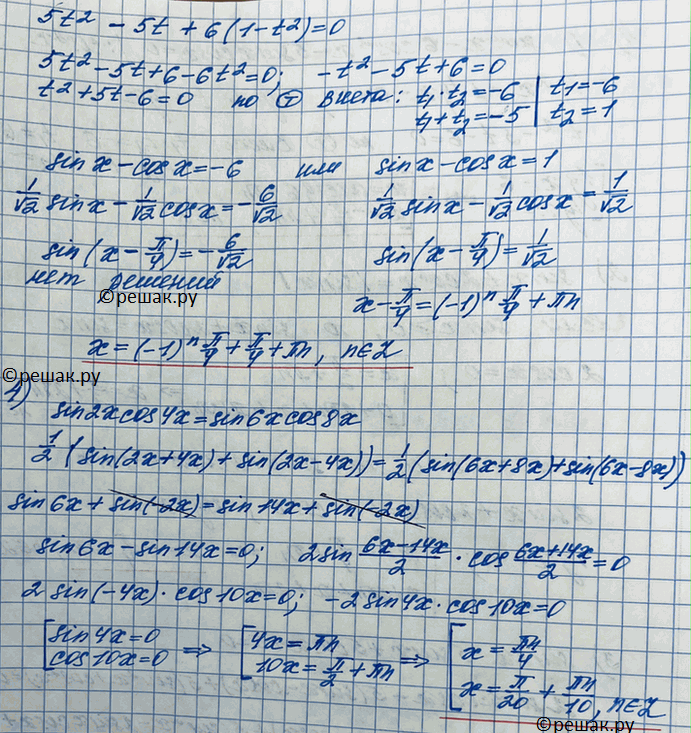 5t² - 5t + 6(1-t²)=0
5t²-5t+6-6t²=0; -t²-5t+6=0
t²+5t-6=0 по Ⓣ Виета: t₁·t₂=-6 | t₁=-6
t₁+t₂=-5 | t₂=1
sinx-cosx=-6 или sinx-cosx=1
1/√2 sinx - 1/√2 cosx = -6/√2 1/√2 sinx - 1/√2 cosx = 1/√2
sin(x-π/4)=-6/√2 sin(x-π/4)=1/√2
нет решений
©решак.ру
x-π/4=(-1)ⁿ π/4+πn
x=(-1)ⁿ π/4+π/4+πn, n∈Z
©решак.ру
4)
sin2xcos4x=sin6xcos8x
1/2(sin(2x+4x)+sin(2x-4x))=1/2(sin(6x+8x)+sin(6x-8x))
sin6x+sin(-2x)=sin14x+sin(-2x)
sin6x-sin14x=0; 2sin (6x-14x)/2 · cos (6x+14x)/2=0
2sin(-4x)·cos10x=0; -2sin4x·cos10x=0
[sin4x=0 ⇒ [4x=πn ⇒ [x=πn/4
cos10x=0 10x=π/2+πn x=π/20+πn/10, n∈Z
©решак.ру